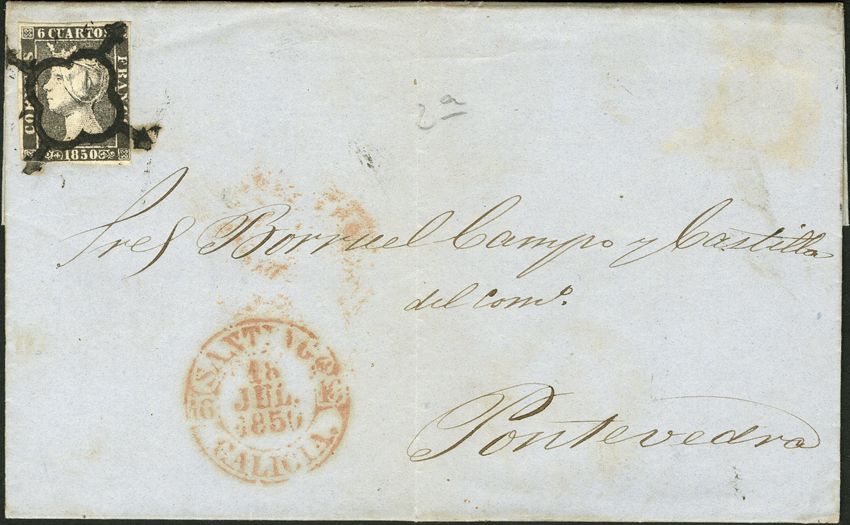 6 CUARTOS
CORREOS
FRANCO
1850
2ª
Sres Borruel Campo y Castilla
del comº.
Pontevedra
SANTIAGO
18
JUL.
1850
GALICIA.